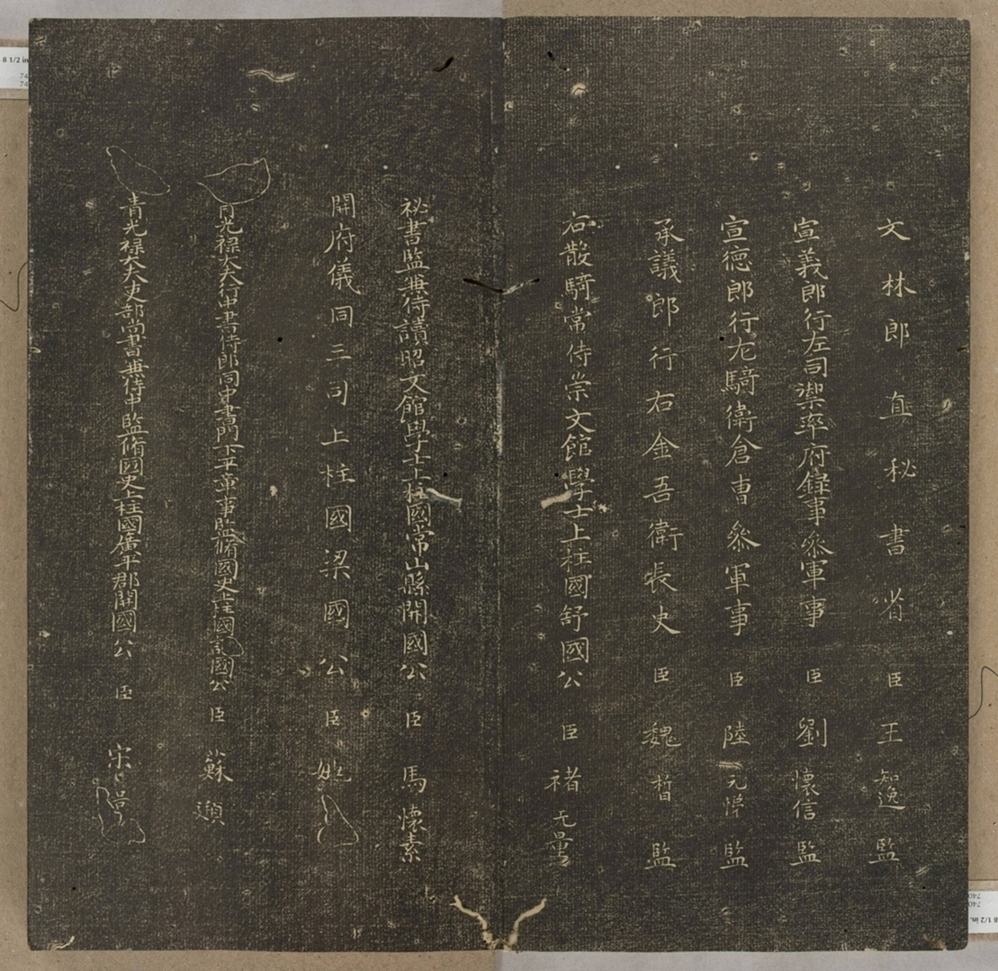 文林郎直秘書省臣王知逸監
宣義郎行左司禦率府錄事叅軍事臣劉懷信監
宣德郎行左驍衛倉曹叅軍事臣陸元悌監
承議郎行右金吾衛長史臣魏哲監
右散騎常侍崇文館學士上柱國舒國公臣褚无量
祕書監兼侍讀昭文館學士上柱國常山縣開國公臣馬懷素
開府儀同三司上柱國梁國公臣姚
青光祿大夫行中書侍郎同中書門下平章事監脩國史上柱國許國公臣蘇頲
青光祿大夫吏部尚書兼侍中監脩國史上柱國廣平郡開國公臣宋璟
8 1/2 in